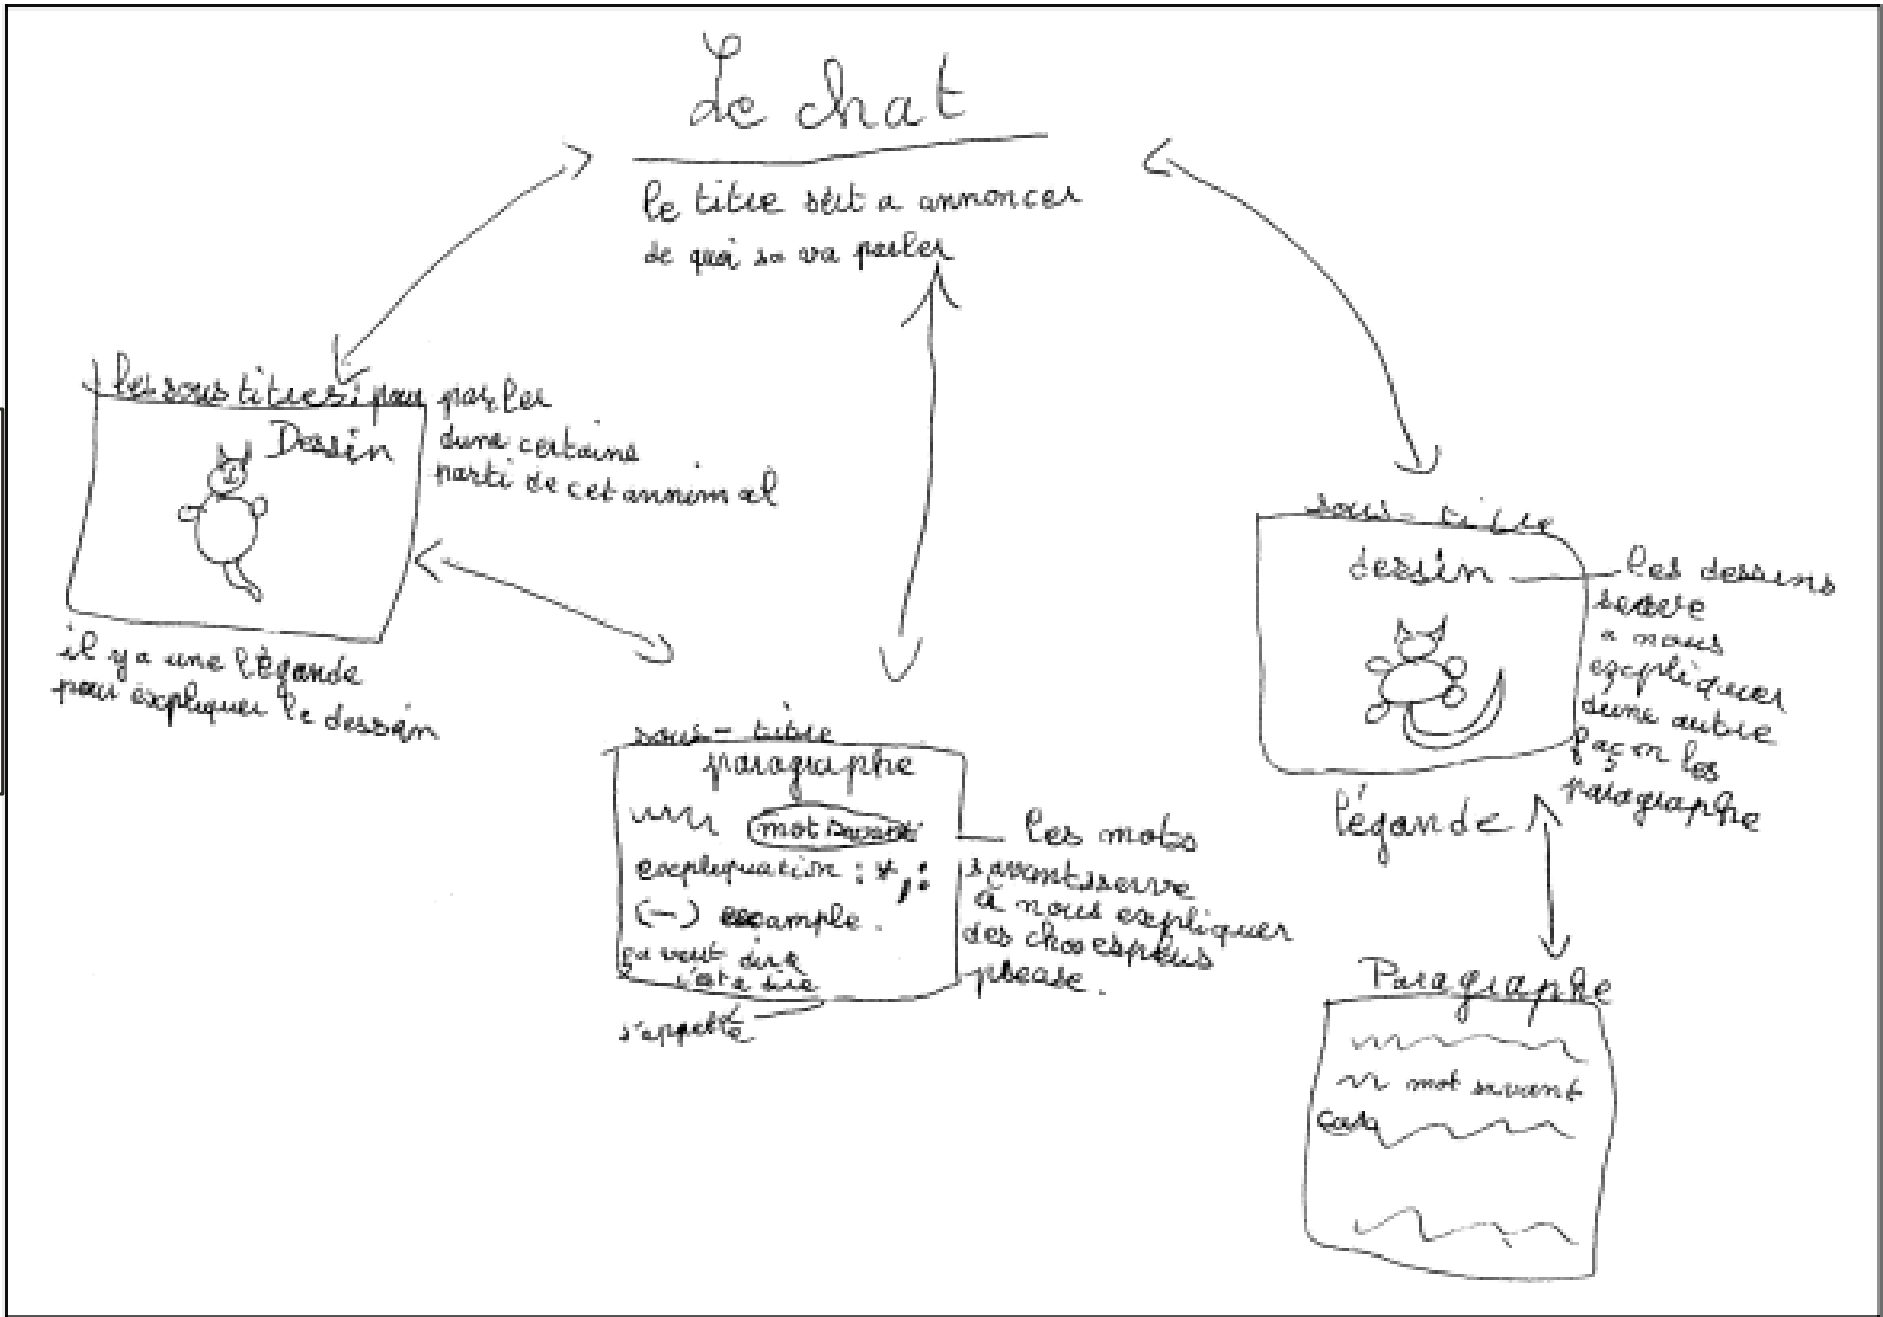 Le chat
le titre sert a annoncer
de quoi sa va parler
les sous titres : pour parler
dune certaine
parti de cet annimal
Dessin
il y a une légande
pour expliquer le dessin
sous-titre
paragraphe
mot savant
expliquation : *, :
(-) example.
ça veut dire
s'appelle
les mots
savant serve
à nous expliquer
des choses plus
sous-titre
dessin
les dessins
serve
a nous
expliquer
dune autre
façon les
paragraphe
légande
Paragraphe
mot savant